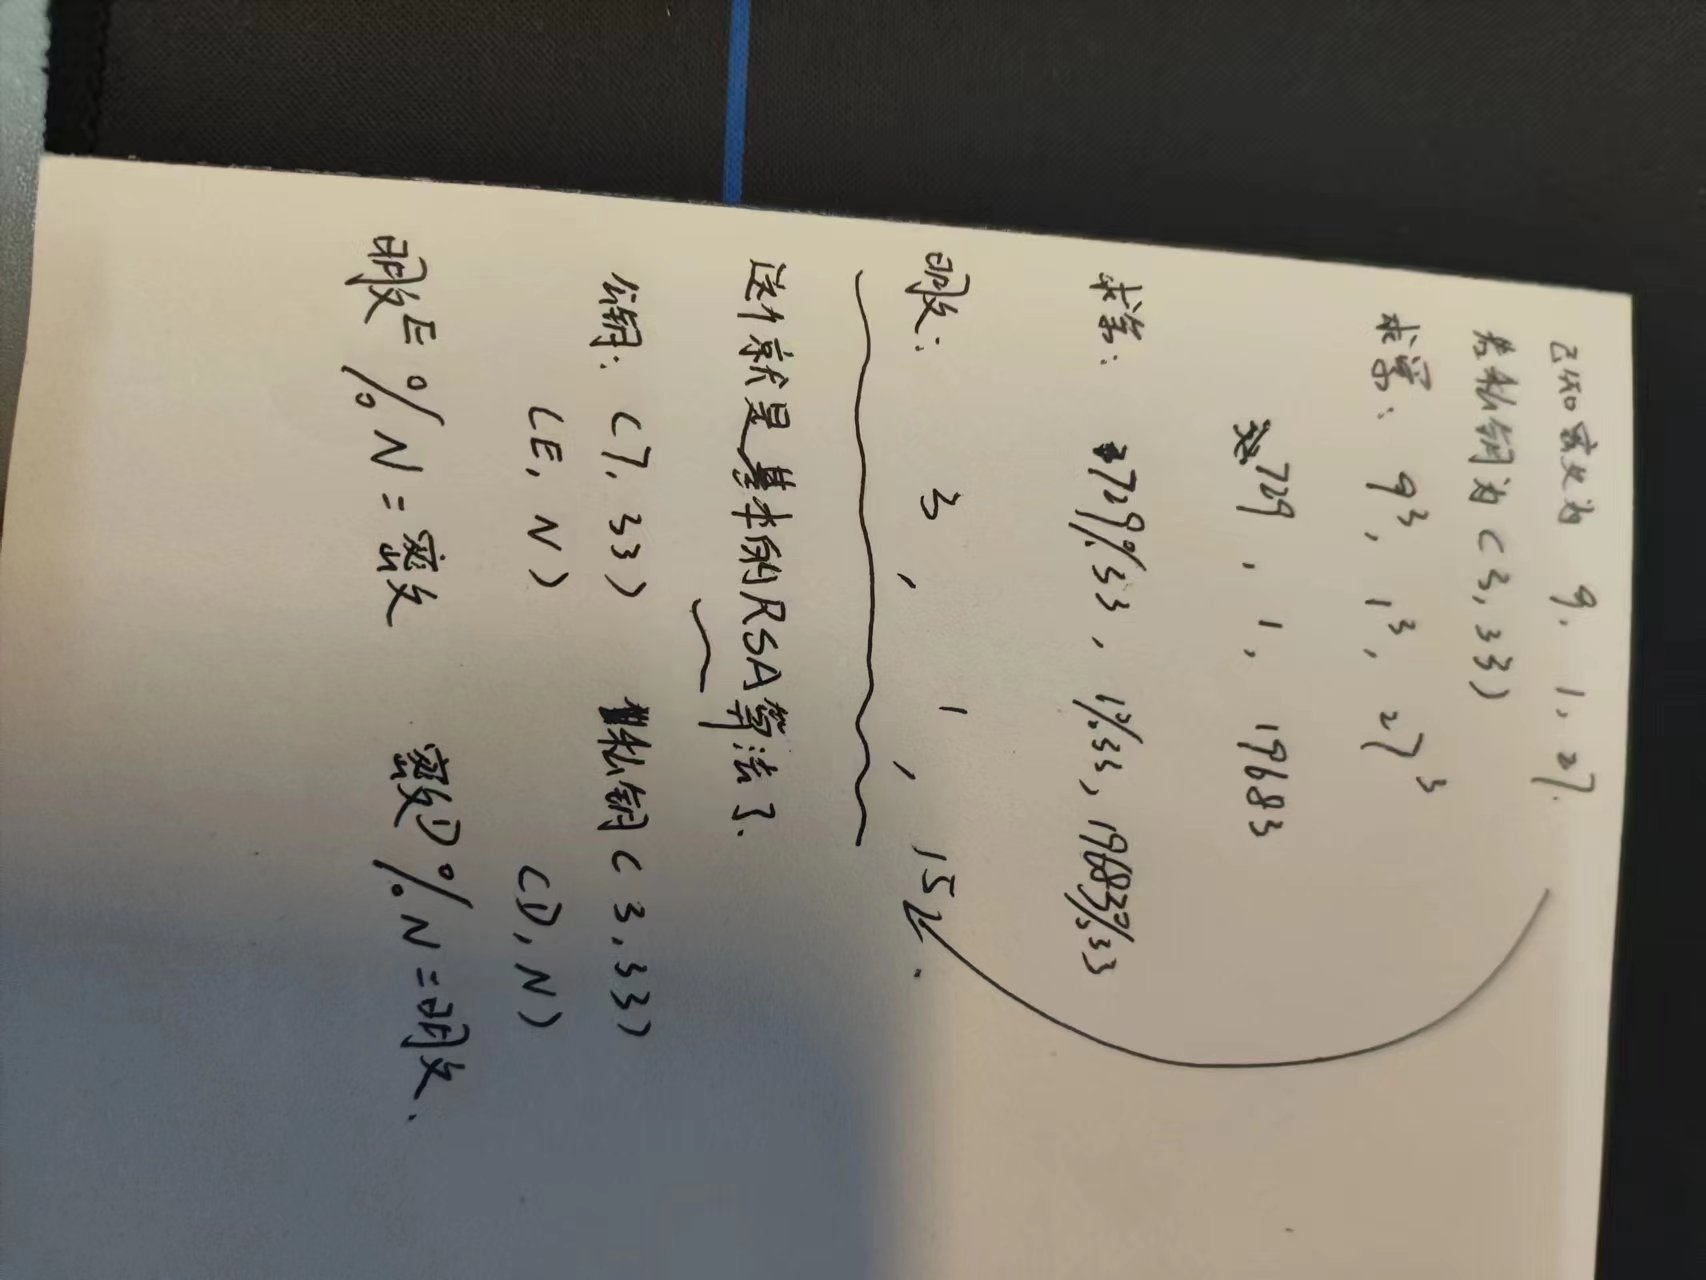 已知密文为 9, 1, 27.
若私钥为 (3, 33)
求幂: 9³, 1³, 27³
729, 1, 19683
求余: 729%33, 1%33, 19683%33
明文: 3, 1, 15.
这个就是基本的RSA算法了.
公钥: (7, 33) 私钥 (3, 33)
(E, N) (D, N)
明文E % N = 密文 密文D % N = 明文.